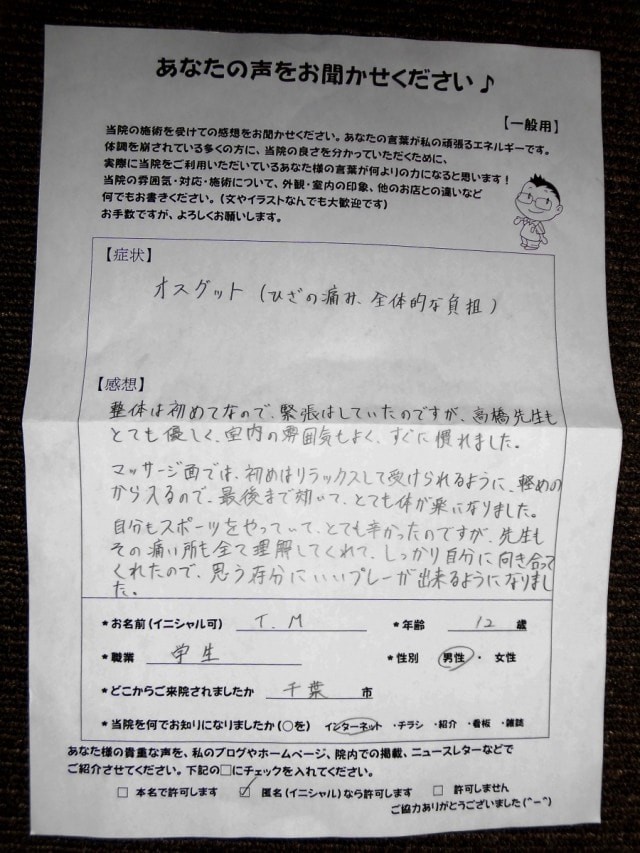 あなたの声をお聞かせください♪
【一般用】
当院の施術を受けての感想をお聞かせください。あなたの言葉が私の頑張るエネルギーです。
体調を崩されている多くの方に、当院の良さを分かっていただくために、
実際に当院をご利用いただいているあなた様の言葉が何よりの力になると思います！
当院の雰囲気・対応・施術について、外観・室内の印象、他のお店との違いなど
何でもお書きください。（文やイラストなんでも大歓迎です）
お手数ですが、よろしくお願いします。
【症状】
オスグット（ひざの痛み、全体的な負担）
【感想】
整体は初めてなので、緊張はしていたのですが、高橋先生も
とても優しく、室内の雰囲気もよく、すぐに慣れました。
マッサージ面では、初めはリラックスして受けられるように、軽めの
から入るので、最後まで効いて、とても体が楽になりました。
自分もスポーツをやっていて、とても辛かったのですが、先生も
その痛い所も全て理解してくれて、しっかり自分に向き合って
くれたので、思う存分にいいプレーが出来るようになりまし
た。
＊お名前（イニシャル可） T.M ＊年齢 12 歳
＊職業 学生 ＊性別 男性 ・ 女性
＊どこからご来院されましたか 千葉 市
＊当院を何でお知りになりましたか（○を） インターネット ・チラシ ・紹介 ・看板 ・雑誌
あなた様の貴重な声を、私のブログやホームページ、院内での掲載、ニュースレターなどで
ご紹介させてください。下記の□にチェックを入れてください。
□ 本名で許可します ☑ 匿名（イニシャル）なら許可します □ 許可しません
ご協力ありがとうございました（＾－＾）